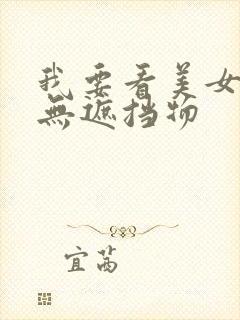 我要看美女
無遮挡物
宜茜